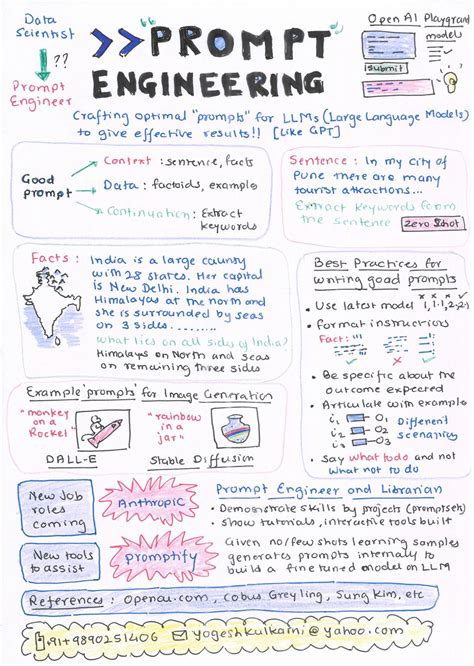 Data
Scientist
??
Prompt
Engineer
>> "PROMPT
ENGINEERING
Open AI Playground
model
submit
Crafting optimal "prompts" for LLMs (Large Language Models)
to give effective results!! [Like GPT]
Good
prompt
Context : sentence, facts
Data : factoids, example
Continuation : Extract
keywords
Sentence : In my city of
Pune there are many
tourist attractions...
Extract keywords from
the sentence
Zero Shot
Facts : India is a large country
with 28 states. Her capital
is New Delhi. India has
Himalayas at the north and
she is surrounded by seas
on 3 sides.........
What lies on all sides of India?
Himalays on North and seas
on remaining three sides
Best Practices for
writing good prompts
• Use latest model
• format instruction
Fact: """
"""
• Be specific about the
outcome expected
• Articulate with example
i₁ O₁
i₂ O₂
i₃ O₃
Different
scenarios
• Say what to do and not
what not to do
Example 'prompts' for Image Generation
"monkey
on a
Rocket"
DALL-E
"rainbow
in a
jar"
Stable Diffusion
New Job
roles
coming
Anthropic
Prompt Engineer and Librarian
• Demonstrate skills by projects (promptsets)
• Show tutorials, interactive tools built
New tools
to assist
promptify
Given no/few shots learning samples
generates prompts internally to
build a fine tuned model on LLM
References : Openai.com, Cobus Greyling, Sung kim, etc
+91 9890251406 yogeshkulkarni@yahoo.com